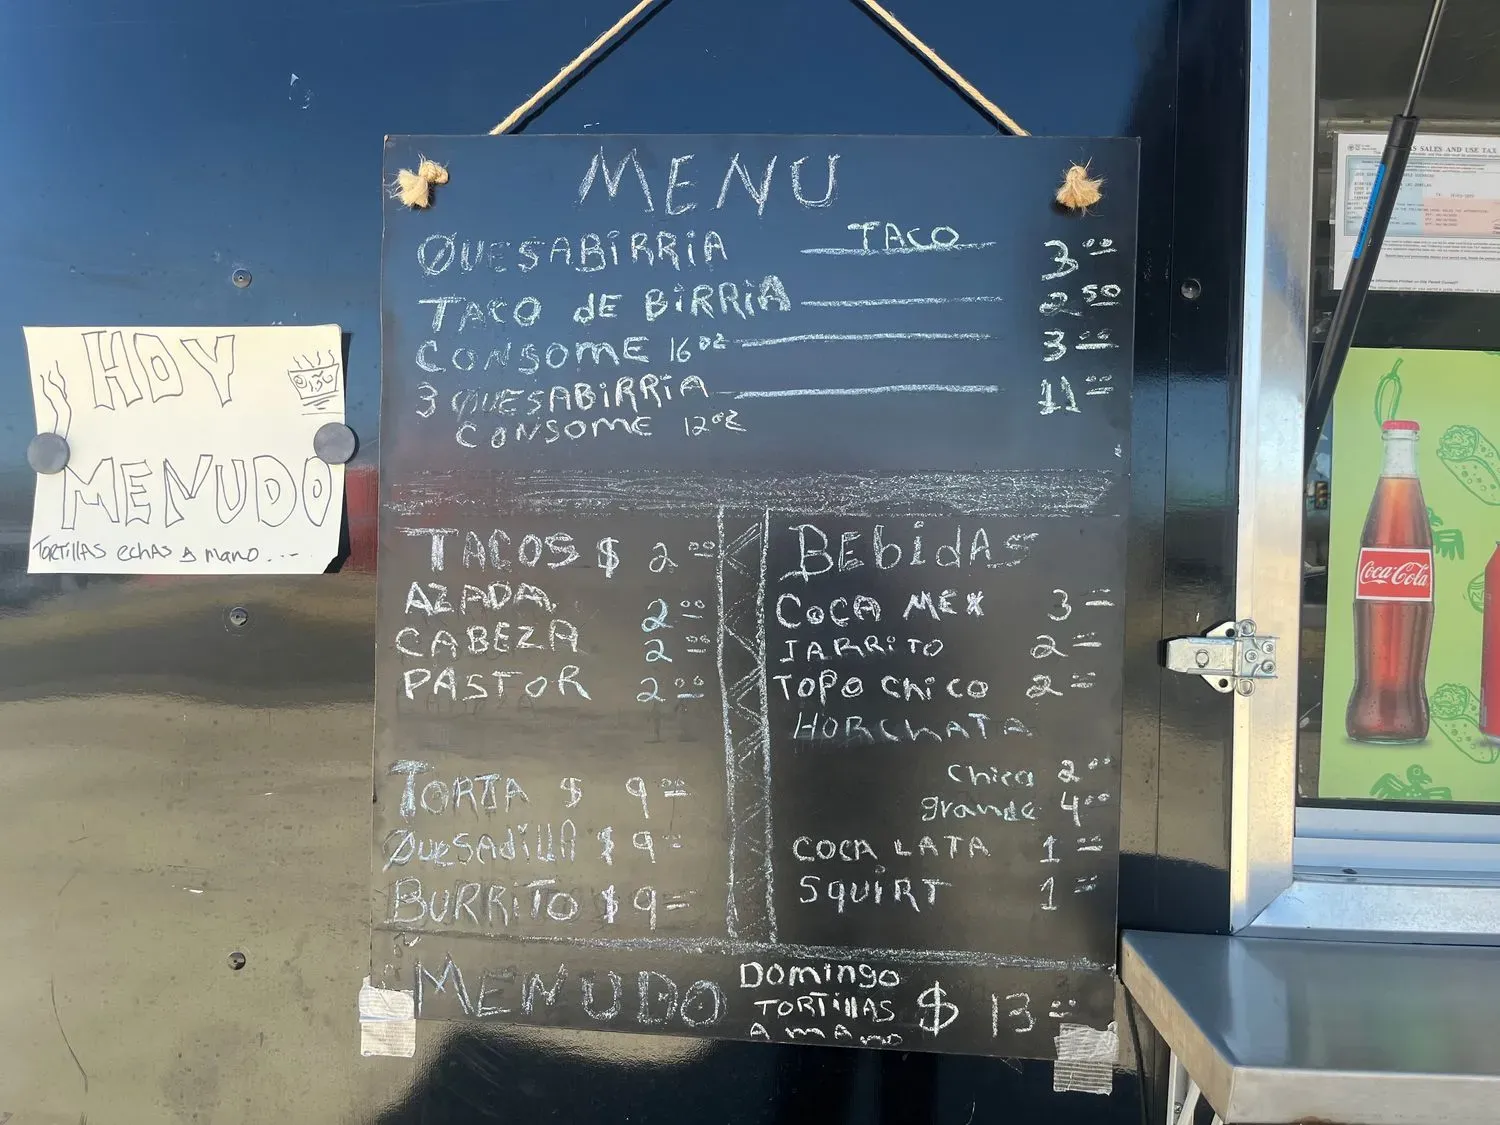 MENU
QUESABIRRIA TACO 3.00
TACO dE BIRRIA 2.50
CONSOME 16oz 3.00
3 QUESABIRRIA 11.00
CONSOME 12oz
TACOS $ 2.00
AZADA, 2.00
CABEZA 2.00
PASTOR 2.00
TORTA $ 9.00
QuesAdillA $ 9
BURRITO $ 9
BEbidAs
COCA MEX 3
JARRITO 2
TOPO CHICO 2
HORCHATA
chica 2.00
grande 4.00
COCA LATA 1
SQUIRT 1
MENUDO Domingo $ 13
TORTillAS
A mAno
HOY
MENUDO
TORTillAS echAS A mano....
SALES AND USE TAX
Coca-Cola